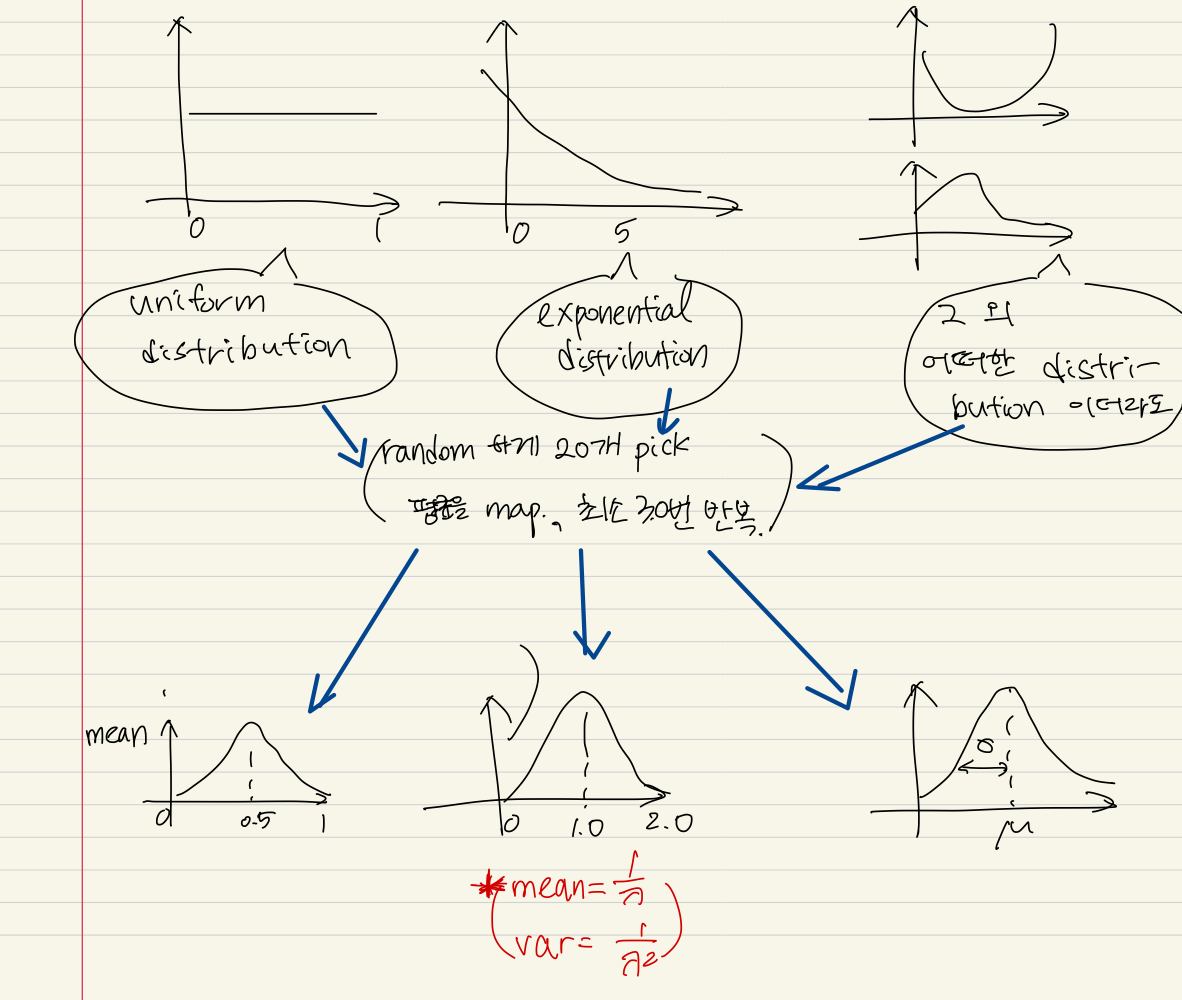 0 1
0 5
uniform
distribution
exponential
distribution
그 외
어떠한 distri-
bution 이더라도
random 하게 20개 pick
평균을 map., 최소 30번 반복.
mean
0 0.5 1
0 1.0 2.0
σ
μ
* mean = 1/λ
var = 1/λ²